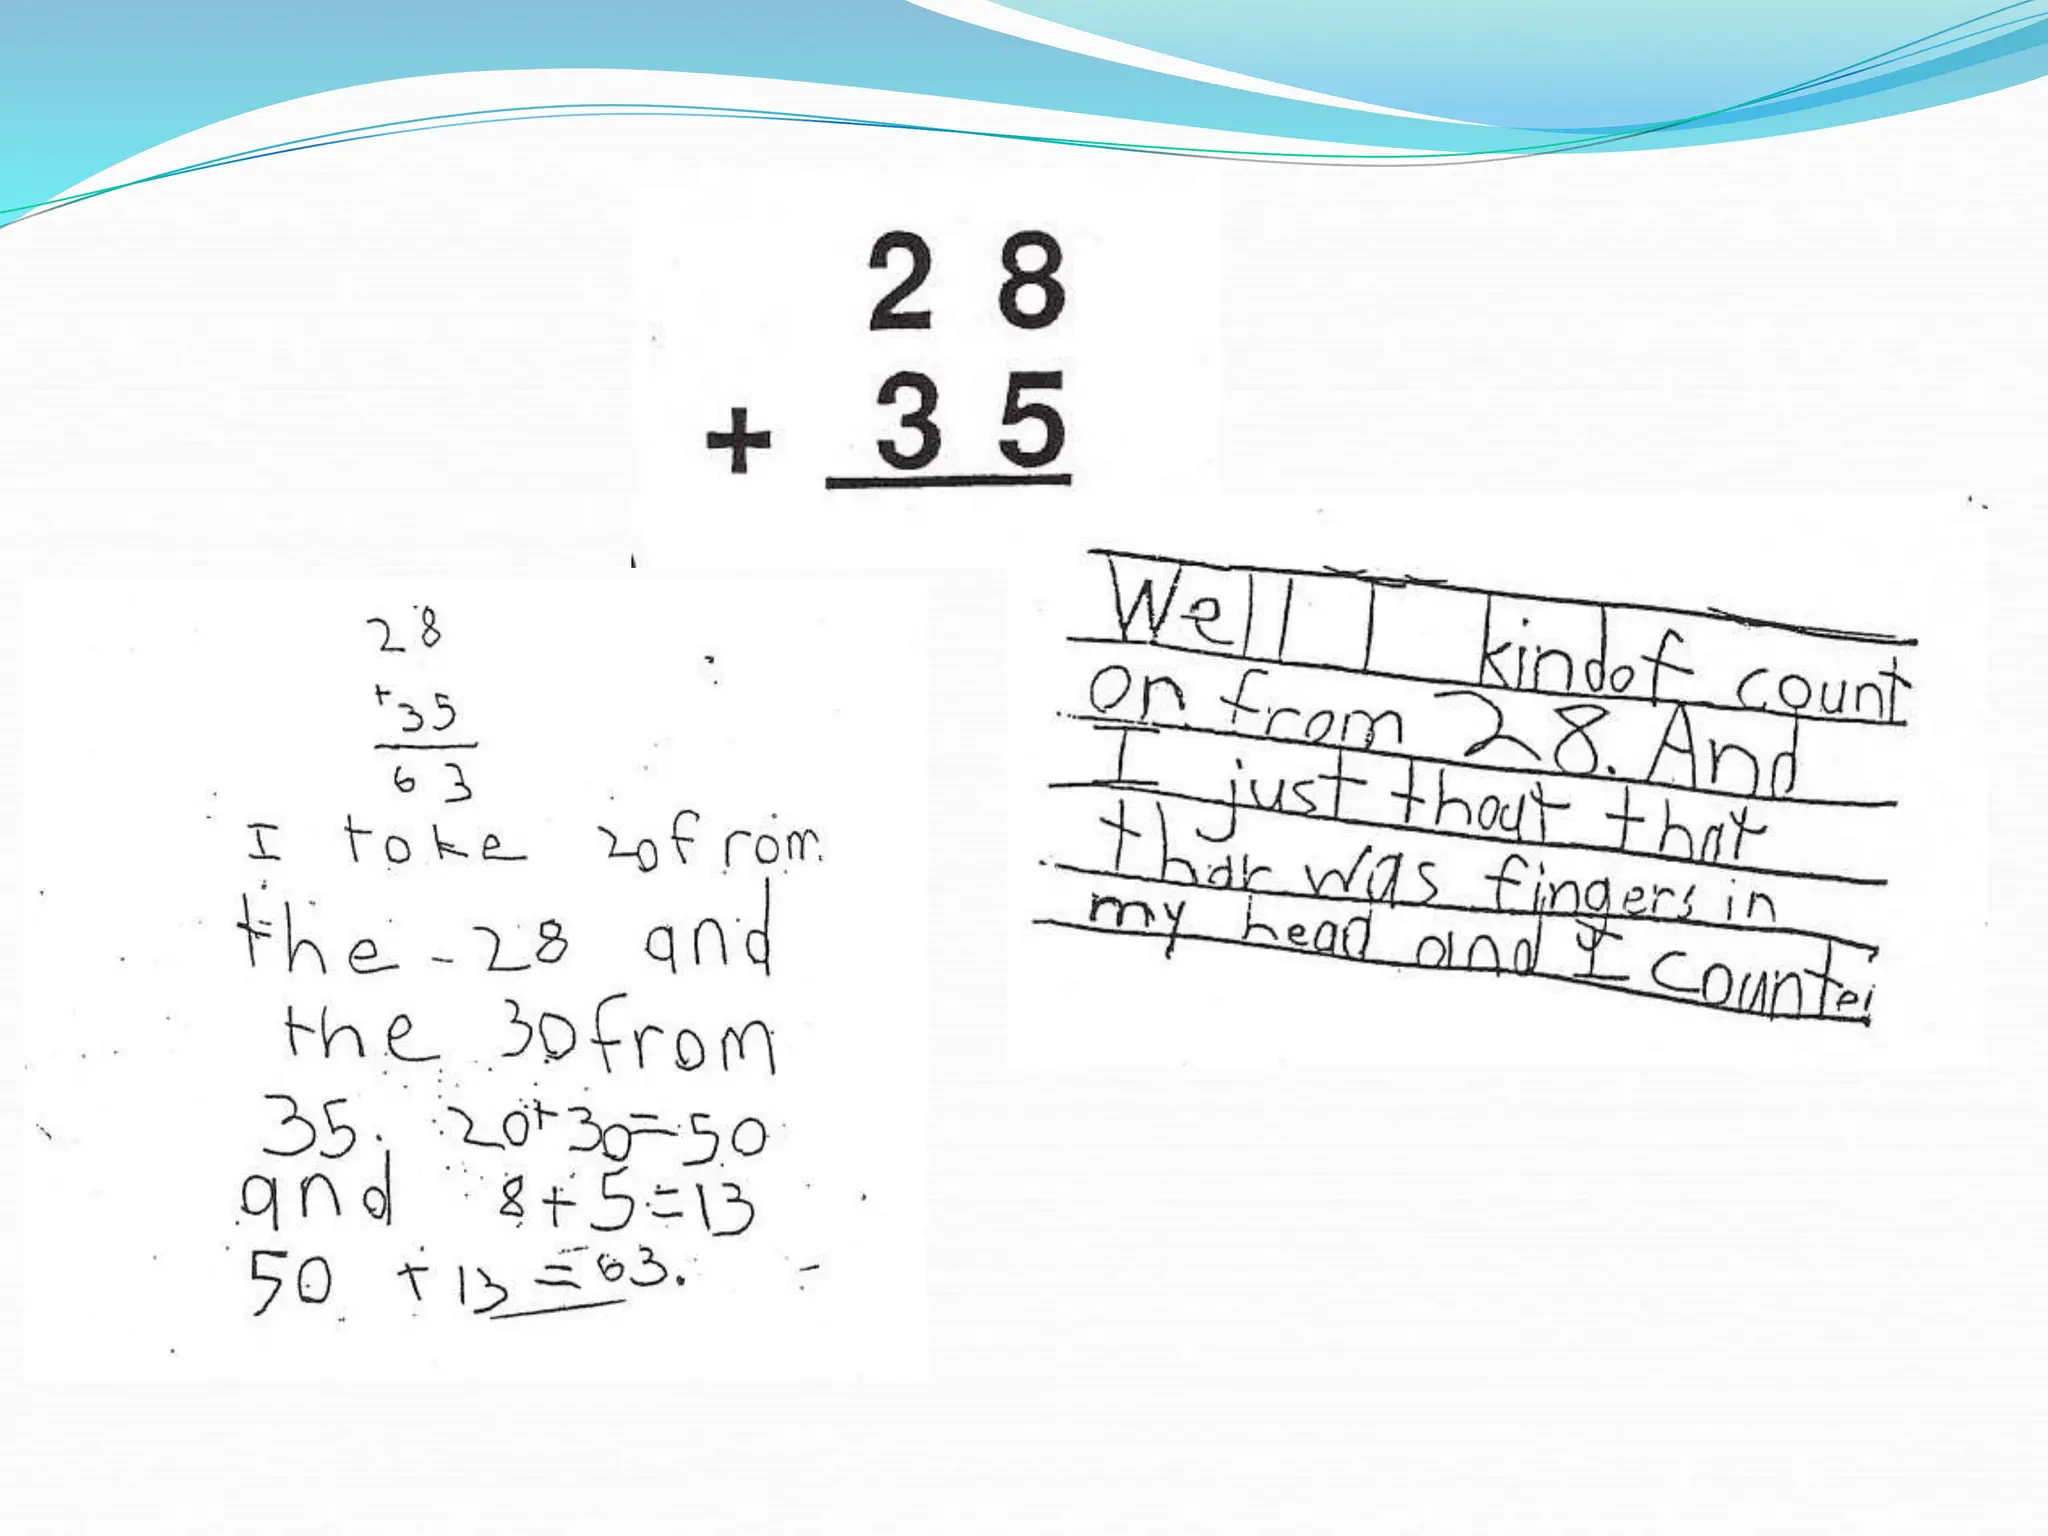 2 8
+ 3 5
2 8
+ 35
6 3
I take 20 from
the - 28 and
the 30 from
35. 20+30=50
and 8+5=13
50 + 13 = 63.
Well I kindof count
on from 28. And
I just thout that
thar was fingers in
my head and I countei